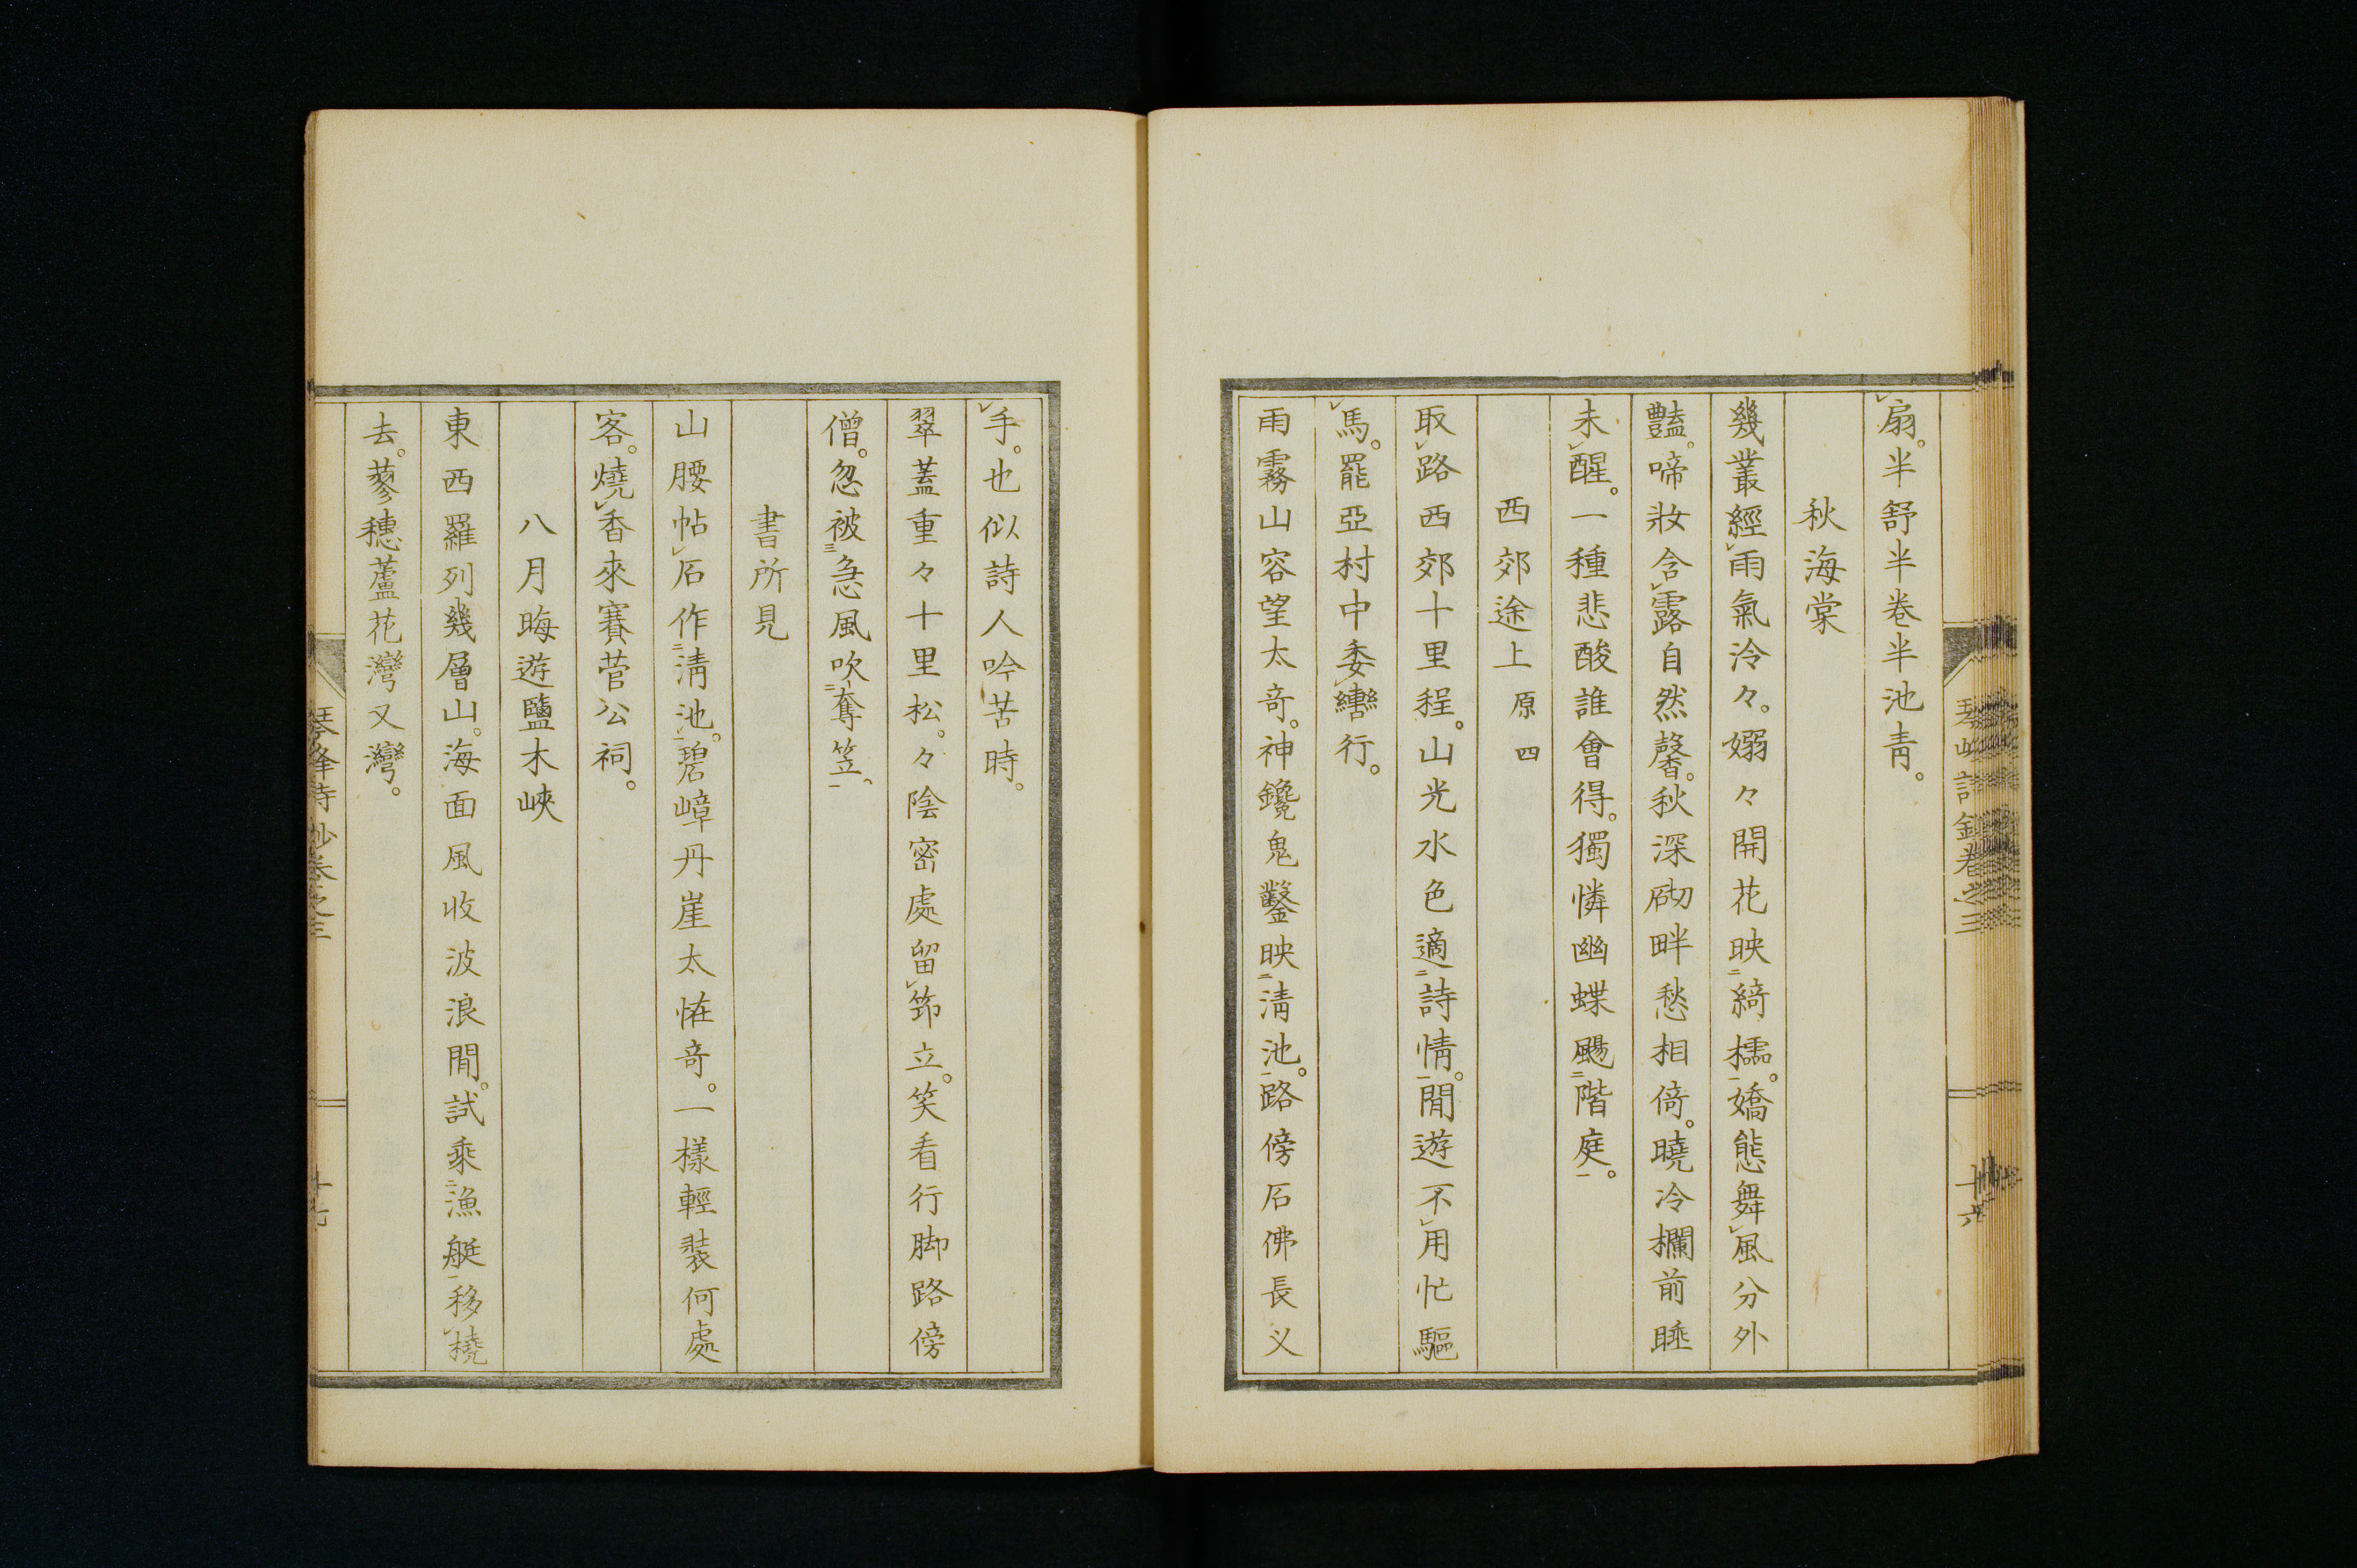 扇。半舒半卷半池青。
秋海棠
幾叢經雨氣冷々。嫋々開花映綺櫺。嬌態舞風分外
豔。啼妝含露自然馨。秋深砌畔愁相倚。曉冷欄前睡
未醒。一種悲酸誰會得。獨憐幽蝶颺階庭。
西郊途上 原四
取路西郊十里程。山光水色適詩情。閒遊不用忙驅
馬。罷亞村中委轡行。
雨霽山容望太奇。神鑱鬼鑿映淸池。路傍石佛長义
手。也似詩人吟苦時。
翠蓋重々十里松。々陰密處留筇立。笑看行脚路傍
僧。忽被急風吹奪笠。
書所見
山腰帖石作淸池。碧嶂丹崖太恠奇。一樣輕裝何處
客。燒香來賽菅公祠。
八月晦遊鹽木峽
東西羅列幾層山。海面風收波浪閒。試乘漁艇移橈
去。蓼穗蘆花灣又灣。
琴峰詩鈔卷之三
十六
琴峰詩鈔卷之三
十七